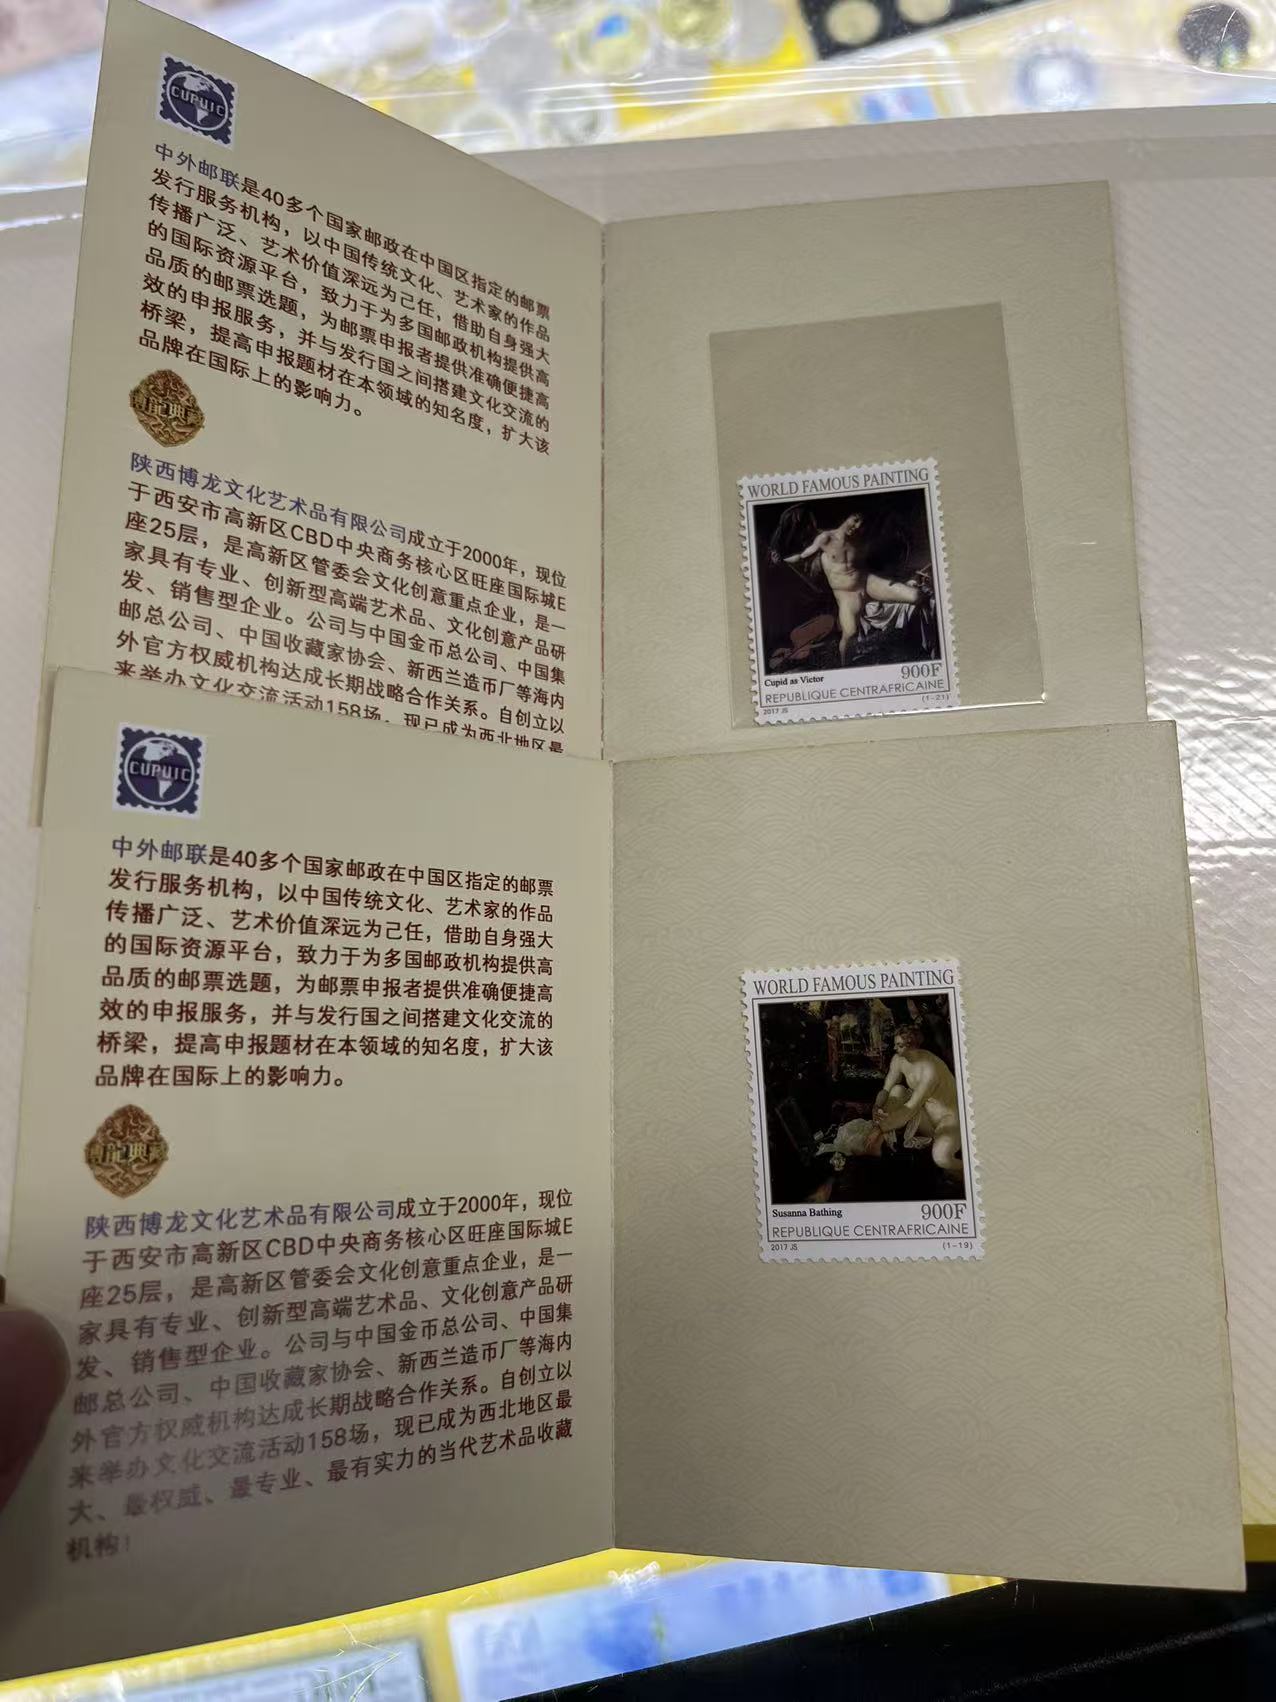 CUPUIC
中外邮联是40多个国家邮政在中国区指定的邮票
发行服务机构，以中国传统文化、艺术家的作品
传播广泛、艺术价值深远为己任，借助自身强大
的国际资源平台，致力于为多国邮政机构提供高
品质的邮票选题，为邮票申报者提供准确便捷高
效的申报服务，并与发行国之间搭建文化交流的
桥梁，提高申报题材在本领域的知名度，扩大该
品牌在国际上的影响力。
博龍典藏
陕西博龙文化艺术品有限公司成立于2000年，现位
于西安市高新区CBD中央商务核心区旺座国际城E
座25层，是高新区管委会文化创意重点企业，是一
家具有专业、创新型高端艺术品、文化创意产品研
发、销售型企业。公司与中国金币总公司、中国集
邮总公司、中国收藏家协会、新西兰造币厂等海内
外官方权威机构达成长期战略合作关系。自创立以
来举办文化交流活动158场，现已成为西北地区最
WORLD FAMOUS PAINTING
Cupid as Victor
900F
REPUBLIQUE CENTRAFRICAINE
2017 JS
(1-21)
CUPUIC
中外邮联是40多个国家邮政在中国区指定的邮票
发行服务机构，以中国传统文化、艺术家的作品
传播广泛、艺术价值深远为己任，借助自身强大
的国际资源平台，致力于为多国邮政机构提供高
品质的邮票选题，为邮票申报者提供准确便捷高
效的申报服务，并与发行国之间搭建文化交流的
桥梁，提高申报题材在本领域的知名度，扩大该
品牌在国际上的影响力。
博龍典藏
陕西博龙文化艺术品有限公司成立于2000年，现位
于西安市高新区CBD中央商务核心区旺座国际城E
座25层，是高新区管委会文化创意重点企业，是一
家具有专业、创新型高端艺术品、文化创意产品研
发、销售型企业。公司与中国金币总公司、中国集
邮总公司、中国收藏家协会、新西兰造币厂等海内
外官方权威机构达成长期战略合作关系。自创立以
来举办文化交流活动158场，现已成为西北地区最
大、最权威、最专业、最有实力的当代艺术品收藏
机构！
WORLD FAMOUS PAINTING
Susanna Bathing
900F
REPUBLIQUE CENTRAFRICAINE
2017 JS
(1-19)